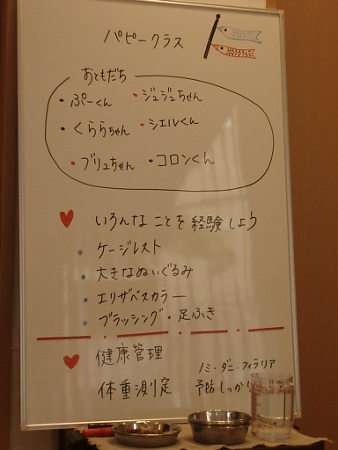 パピークラス
おともだち
・ぷーくん ・ジュジュちゃん
・くららちゃん ・シエルくん
・ブリュちゃん ・コロンくん
♥ いろんなことを経験しよう
・ケージレスト
・大きなぬいぐるみ
・エリザベスカラー
・ブラッシング・足ふき
♥ 健康管理
体重測定
ノミ・ダニ・フィラリア
予防しっかり